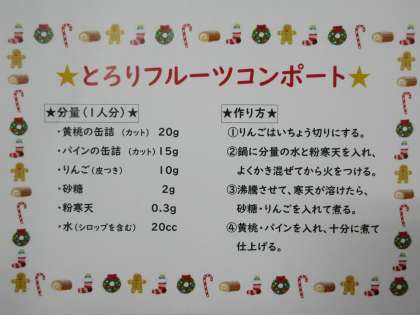 ★とろりフルーツコンポート★
★分量(1人分)★
・黄桃の缶詰 (カット) 20g
・パインの缶詰 (カット) 15g
・りんご(皮つき) 10g
・砂糖 2g
・粉寒天 0.3g
・水(シロップを含む) 20cc
★作り方★
①りんごはいちょう切りにする。
②鍋に分量の水と粉寒天を入れ、
よくかき混ぜてから火をつける。
③沸騰させて、寒天が溶けたら、
砂糖・りんごを入れて煮る。
④黄桃・パインを入れ、十分に煮て
仕上げる。